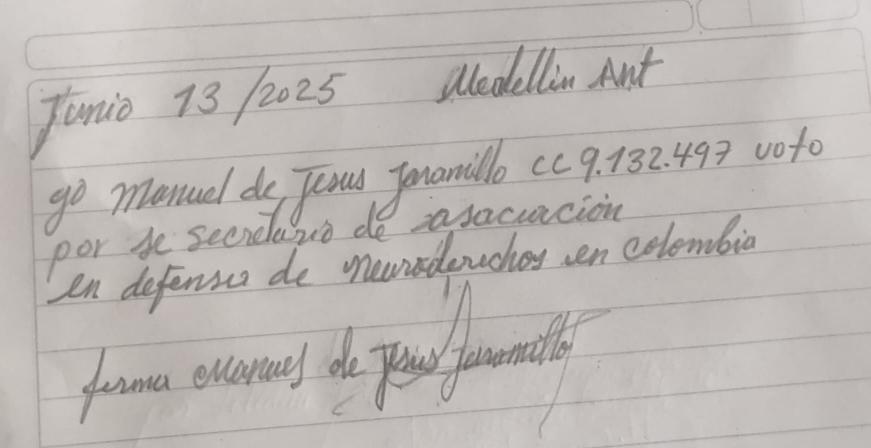 Junio 13/2025 Medellin Ant
yo Manuel de Jesus Jaramillo cc 9.132.497 voto
por se secretario de asaciación
en defensa de neuroderechos en colombia
firma Manuel de Jesus Jaramillo